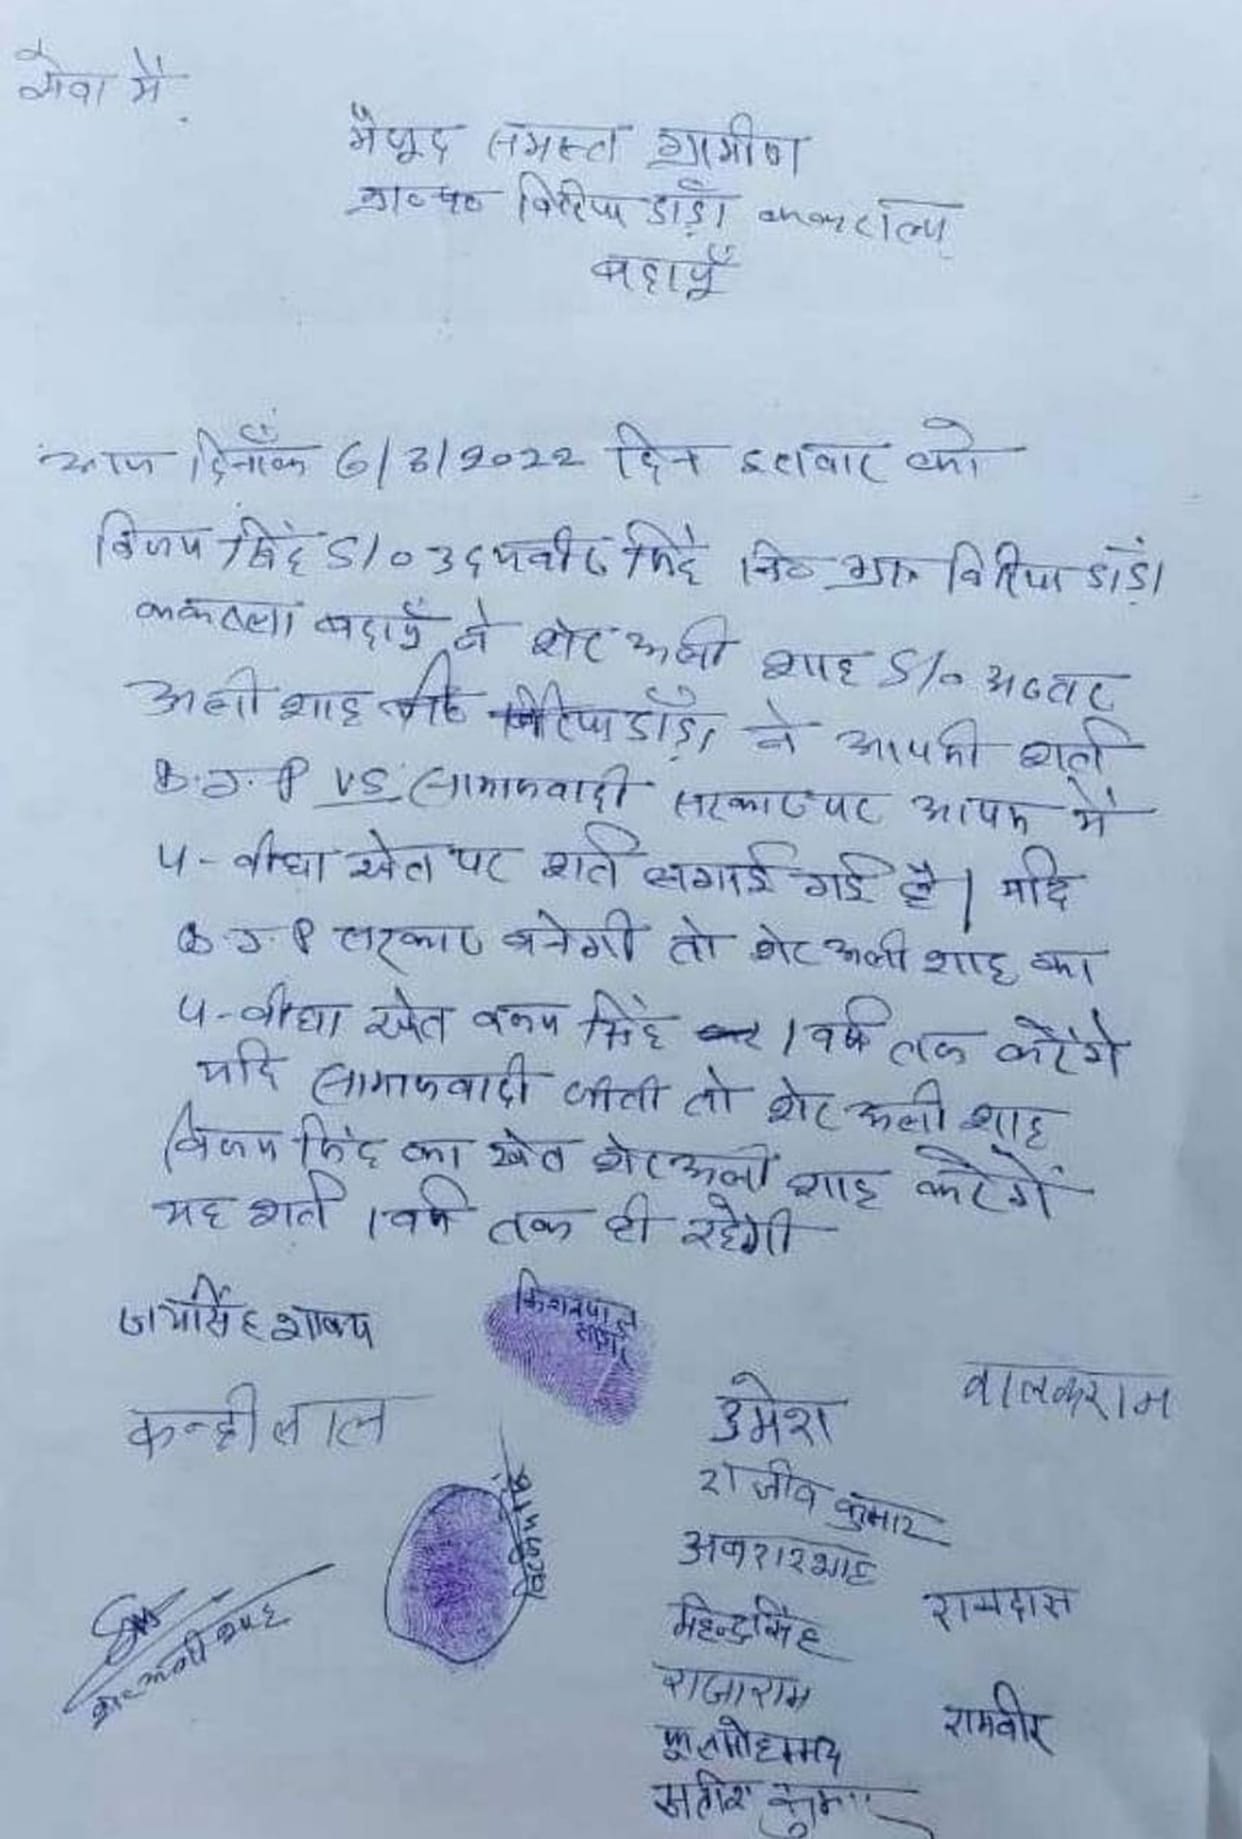 सेवा में
मौजूद समस्त ग्रामीण
ग्रा० प० विरिया डांड़ा ककराला
बदायूँ
आज दिनाँक 6/3/2022 दिन इतवार को
विजय सिंह S/o उदयवीर सिंह नि० ग्राम विरिया डांड़ा
ककराला बदायूँ ने शेर अली शाह S/o अख्तर
अली शाह नि० विरिया डांड़ा ने आपसी शर्त
B.J.P VS सामाजवादी सरकार पर आपस में
4-वीघा खेत पर शर्त लगाई गई है। यदि
B.J.P सरकार बनेगी तो शेर अली शाह का
4-वीघा खेत विजय सिंह 1 वर्ष तक करेंगे
यदि सामाजवादी जीती तो शेर अली शाह
विजय सिंह का खेत शेर अली शाह करेगें
यह शर्त 1 वर्ष तक ही रहेगी
जयसिंह शाक्य
किशनपाल
कन्हीलाल
उमेश
वालकराम
राजीव कुमार
विजय सिंह
अबरारशाह
शेर अली शाह
महेन्द्रसिंह
रामदास
राजाराम
रामवीर
फूलमोहम्मद
सतीश कुमार